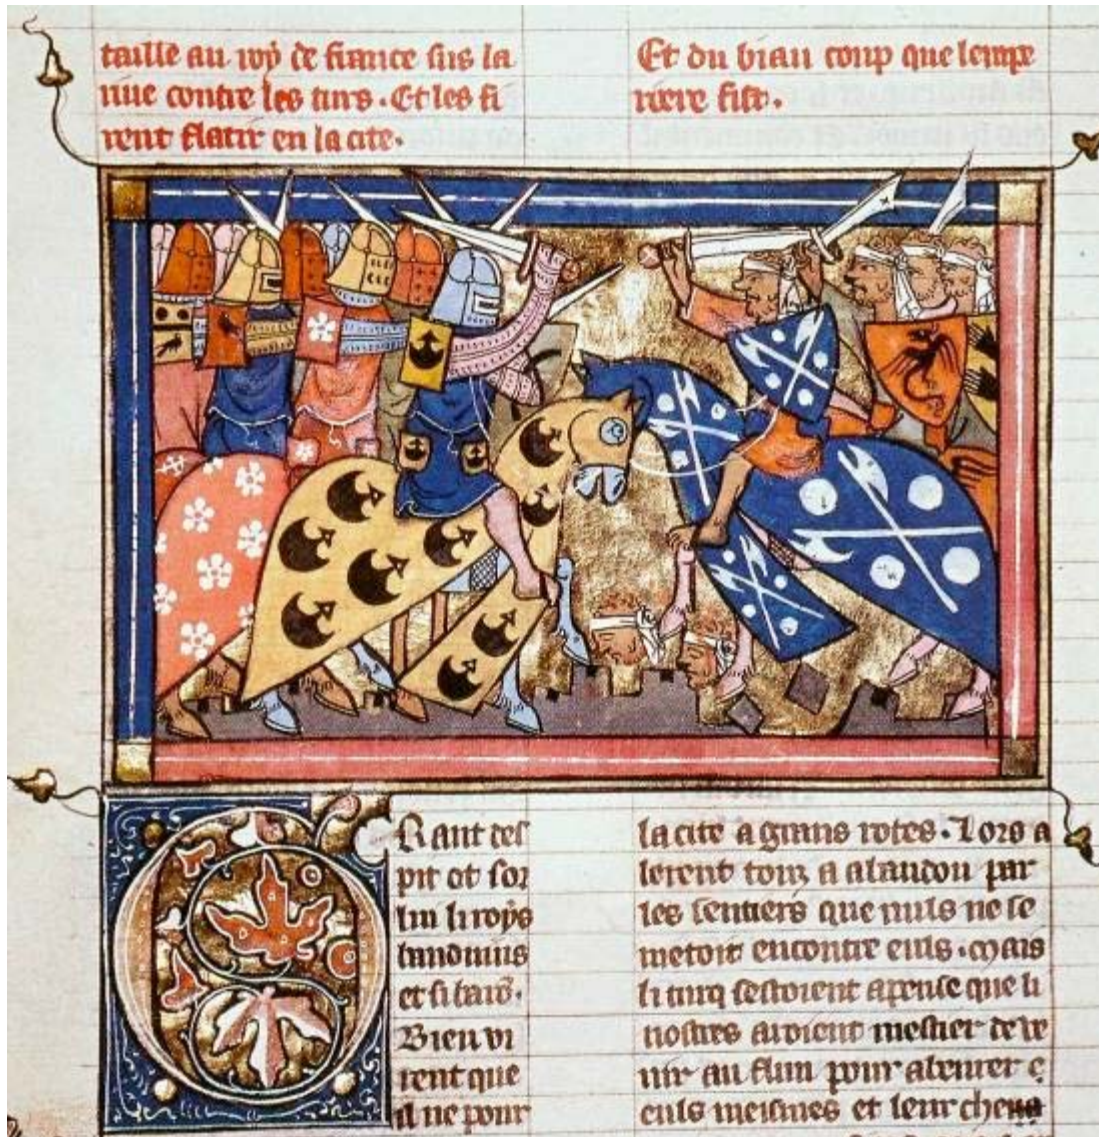 taille au roy de france sus la
riue contre les turs. Et les fi
rent flatir en la cite.
Et du biau coup que lempe
riere fist.
Grant des
pit ot sor
lui li roys
baudouins
et si baro.
Bien vi
rent que
il ne pour
la cite a grans rotes. Lors a
lerent touz a abandon par
les sentiers que nuls ne se
metoit encontre euls. Mais
li turq sestoient apense que li
nostres auoient mestier de ve
nir au flun pour abeurer
euls meismes et leur cheua